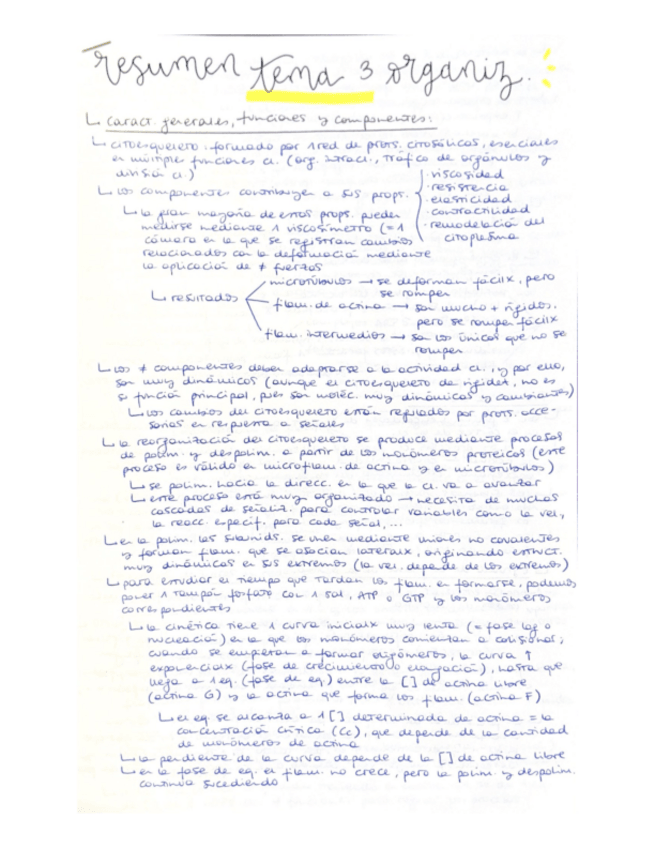 resumen tema 3 organiz.
↳ caract. generales, funciones y componentes:
↳ citoesqueleto: formado por 1 red de prots. citosólicas, esenciales
en múltiples funciones cl. (org. intracl., tráfico de orgánulos y
división cl.)
↳ los componentes contribuyen a sus props.
· viscosidad
· resistencia
· elasticidad
· contractilidad
· remodelación del
citoplasma
↳ la gran mayoría de estas props. pueden
medirse mediante 1 viscosímetro (= 1
cámara en la que se registran cambios
relacionados con la deformación mediante
la aplicación de ≠ fuerzas
↳ resultados
microtúbulos → se deforman fácilx, pero
se rompen
filam. de actina → son mucho + rígidos,
pero se rompen fácilx
filam. intermedios → son los únicos que no se
rompen
↳ los ≠ componentes deben adaptarse a la actividad cl., y por ello,
son muy dinámicos (aunque el citoesqueleto da rigidez, no es
su función principal, pues son moléc. muy dinámicas y cambiantes)
↳ los cambios del citoesqueleto están regulados por prots. acce-
sorias en respuesta a señales
↳ la reorganización del citoesqueleto se produce mediante procesos
de polim. y despolim. a partir de los monómeros proteicos (este
proceso es válido en microfilam. de actina y en microtúbulos)
↳ se polim. hacia la direcc. en la que la cl. va a avanzar
↳ este proceso está muy organizado → necesita de muchas
cascadas de señaliz. para controlar variables como la vel.,
la reacc. específ. para cada señal, ...
↳ en la polim. las subunids. se unen mediante uniones no covalentes
y forman filam. que se asocian lateralx, originando estruct.
muy dinámicas en sus extremos (la vel. depende de los extremos)
↳ para estudiar el tiempo que tardan los filam. en formarse, podemos
poner 1 tampón fosfato con 1 sal, ATP o GTP y los monómeros
correspondientes
↳ la cinética tiene 1 curva inicialx muy lenta (= fase lag o
nucleación) en la que los monómeros comienzan a colisionar;
cuando se empiezan a formar oligómeros, la curva ↑
exponencialx (fase de crecimiento o elongación), hasta que
llega a 1 eq. (fase de eq.) entre la [] de actina libre
(actina G) y la actina que forma los filam. (actina F)
↳ el eq. se alcanza a 1 [] determinada de actina = la
concentración crítica (Cc), que depende de la cantidad
de monómeros de actina
↳ la pendiente de la curva depende de la [] de actina libre
↳ en la fase de eq. el filam. no crece, pero la polim. y despolim.
continúa sucediendo